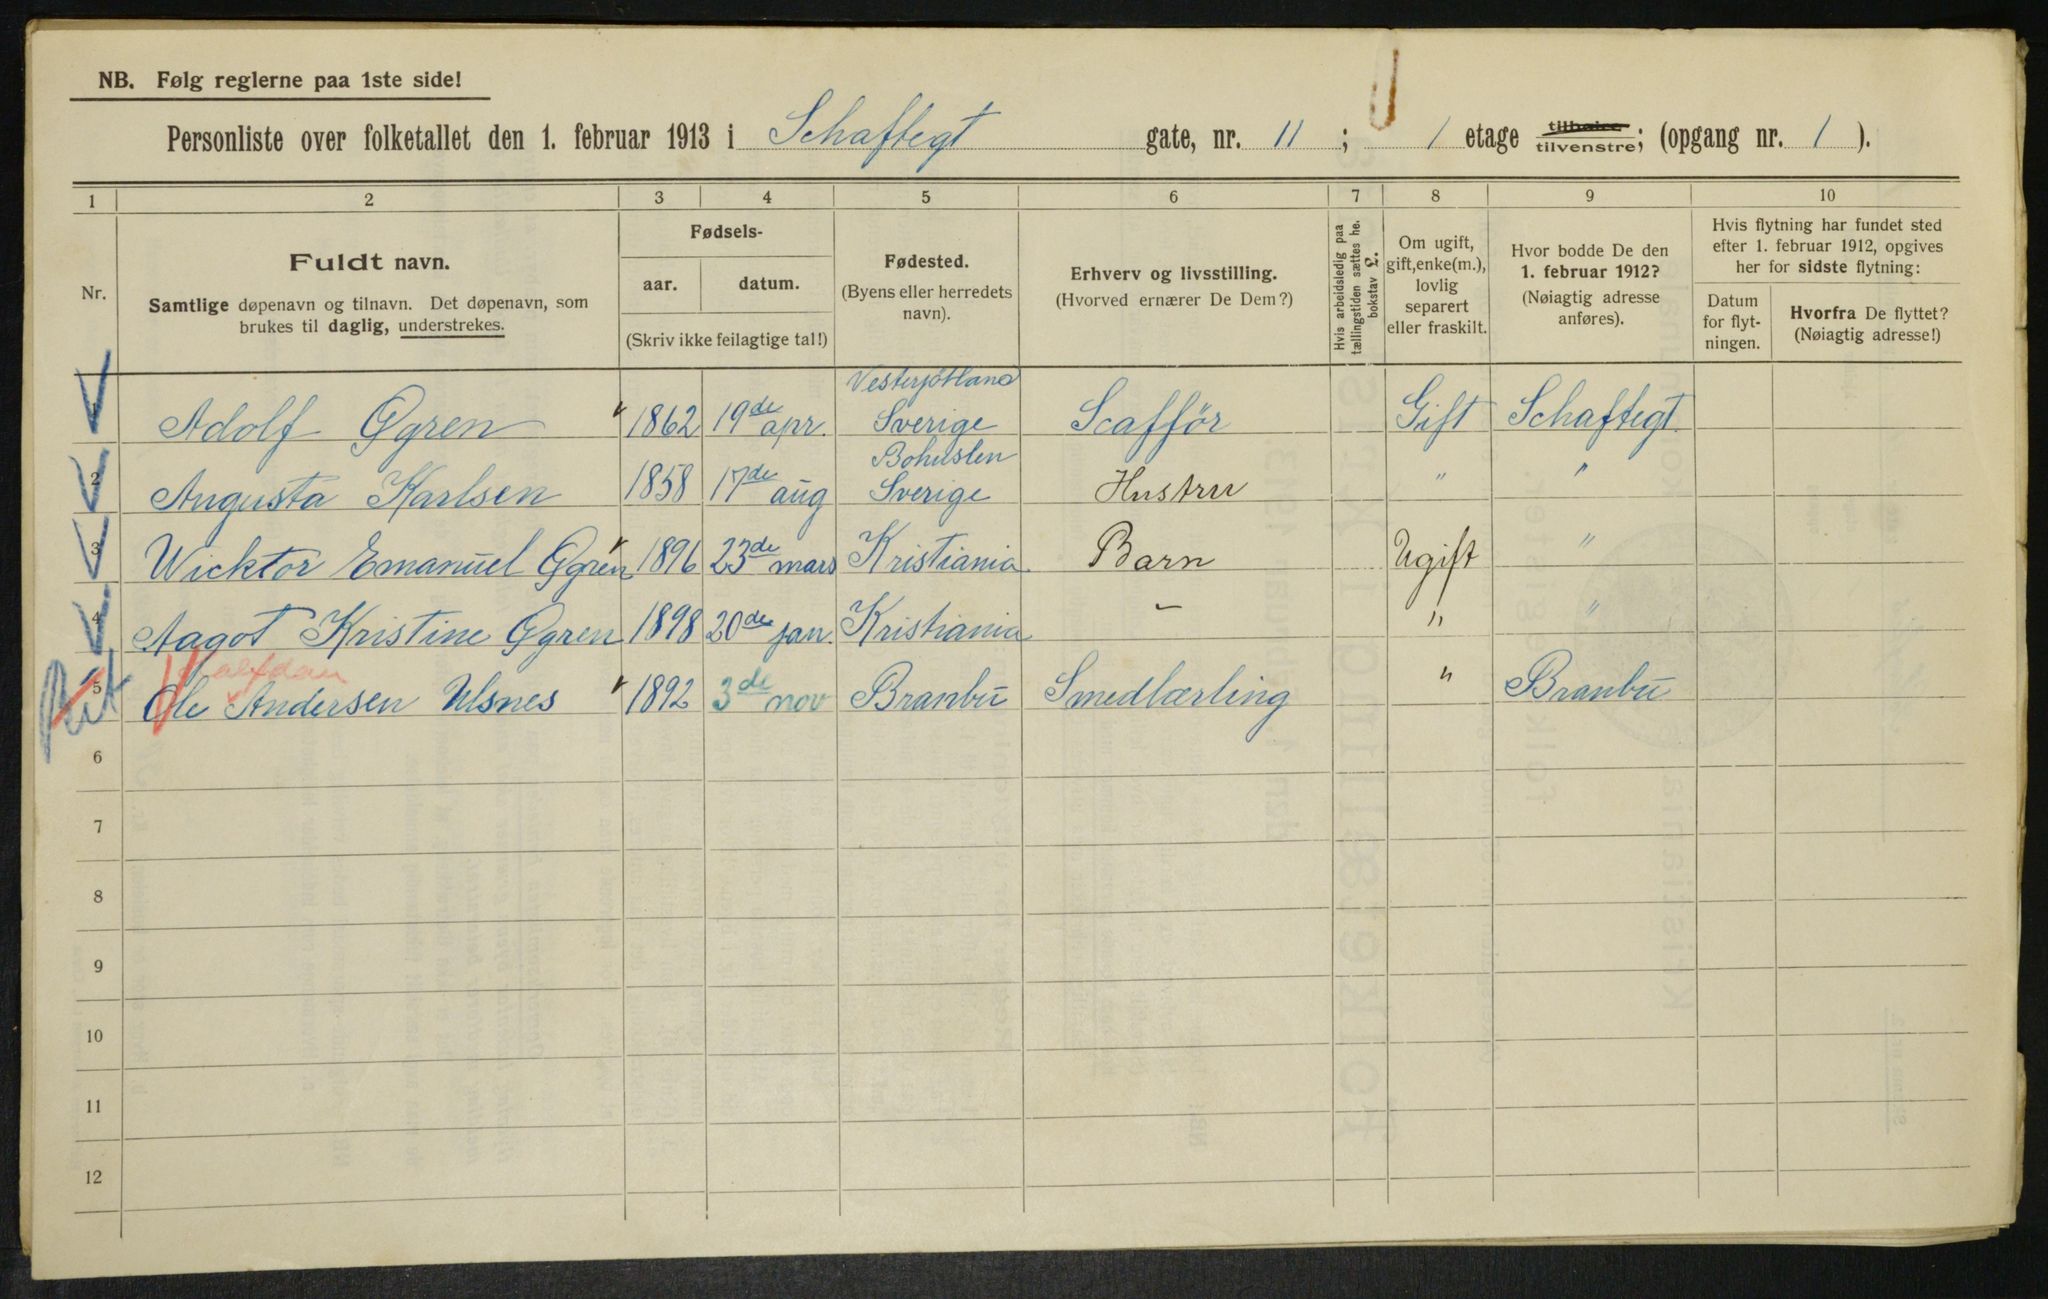 NB. Følg reglerne paa 1ste side!
Personliste over folketallet den 1. februar 1913 i Schaftegt gate, nr. 11 ; 1 etage tilhøire tilvenstre; (opgang nr. 1 ).
1 2 3 4 5 6 7 8 9 10
Nr.
Fuldt navn.
Samtlige døpenavn og tilnavn. Det døpenavn, som
brukes til daglig, understrekes.
Fødsels-
aar. datum.
(Skriv ikke feilagtige tal!)
Fødested.
(Byens eller herredets
navn).
Erhverv og livsstilling.
(Hvorved ernærer De Dem?)
Hvis arbeidsledig paa
tællingstiden sættes he.
bokstav L.
Om ugift,
gift, enke(m.),
lovlig
separert
eller fraskilt.
Hvor bodde De den
1. februar 1912?
(Nøiagtig adresse
anføres).
Hvis flytning har fundet sted
efter 1. februar 1912, opgives
her for sidste flytning:
Datum
for flyt-
ningen.
Hvorfra De flyttet?
(Nøiagtig adresse!)
Vesterjötland
1 Adolf Ogren 1862 19de apr. Sverige Scafför Gift Schaftegt.
Bohuslen
2 Augusta Karlsen 1858 17de aug Sverige Hustru " "
3 Wicktor Emanuel Ogren 1896 23de mars Kristiania Barn Ugift "
4 Aagot Kristine Ogren 1898 20de jan. Kristiania - " "
Halfdan
5 Ole Andersen Ulsnes 1892 3de nov Branbu Smedlærling " Branbu
6
7
8
9
10
11
12